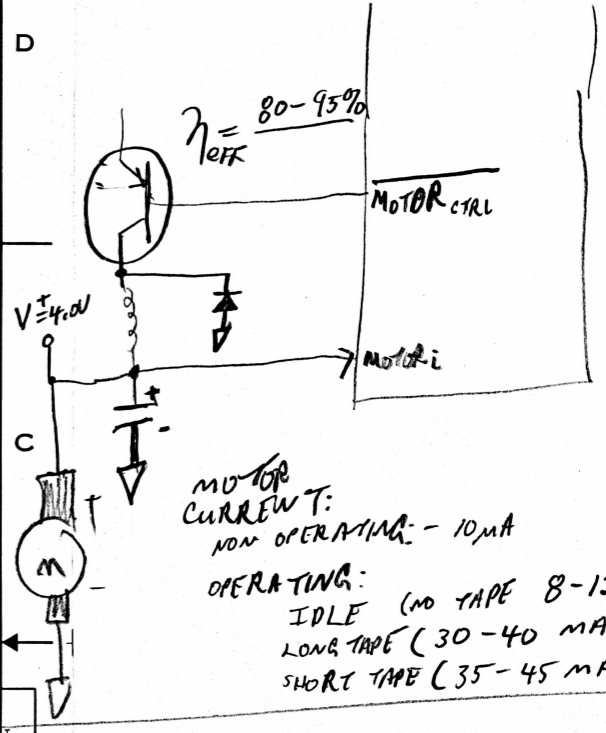 D
ηeff = 80-95%
MOTOR CTRL
V+=4.0V
MOTOR i
+
-
C
MOTOR
CURRENT:
NON OPERATING: - 10µA
+
M
-
OPERATING:
IDLE (NO TAPE 8-1
LONG TAPE (30-40 MA
SHORT TAPE (35-45 MA